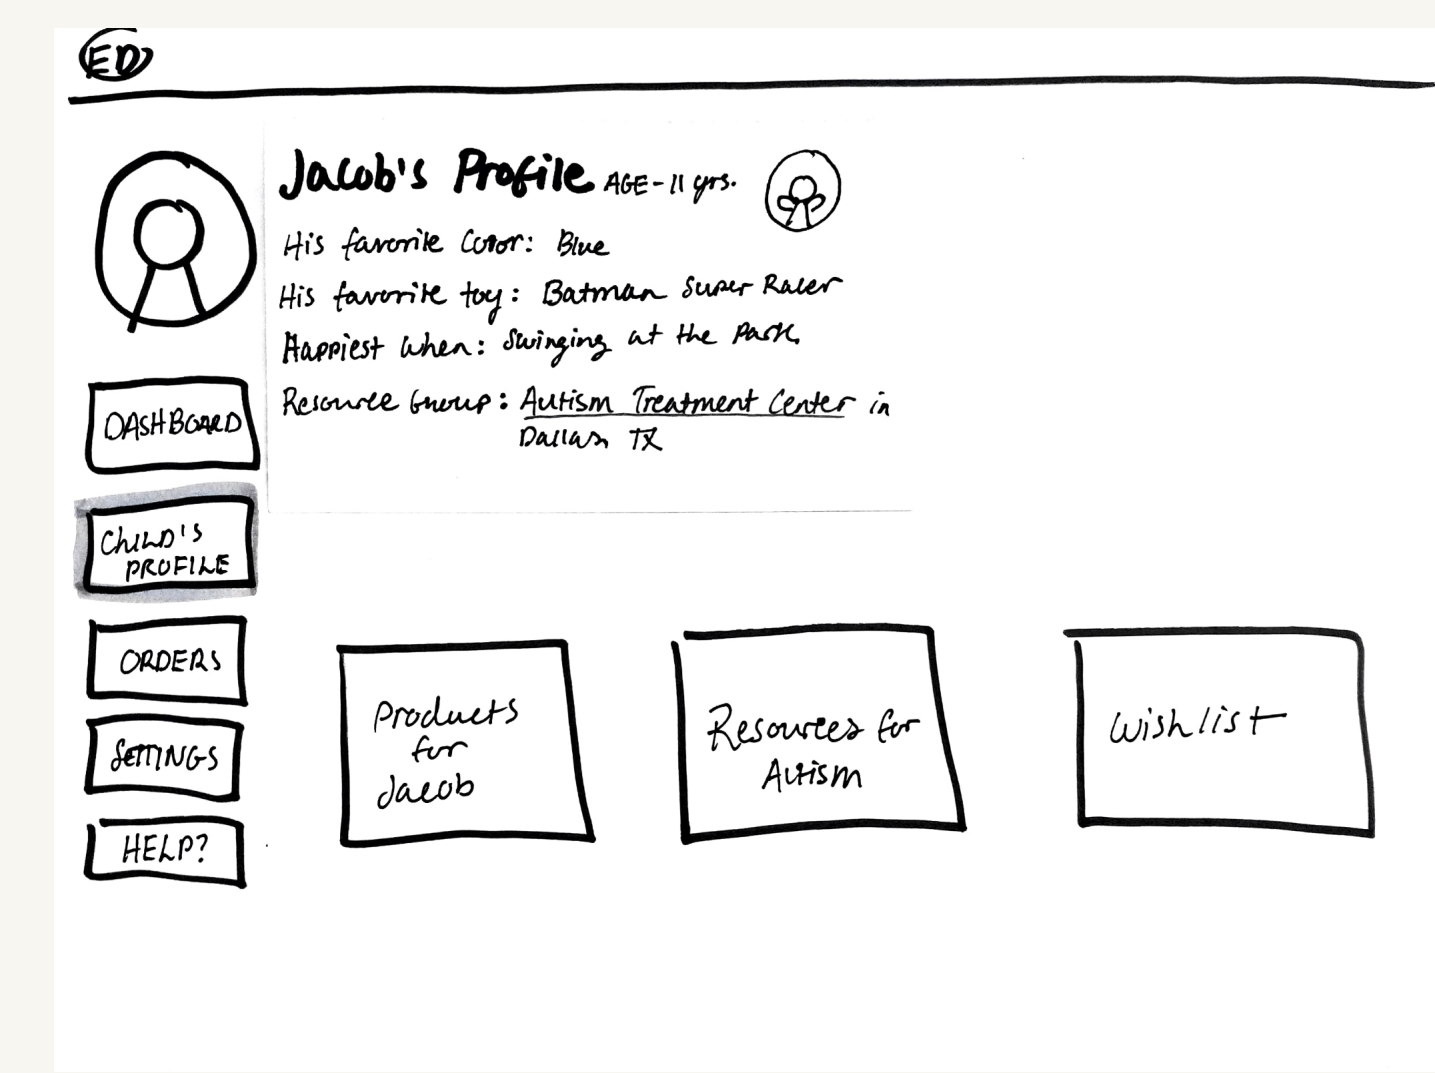 ED
Jacob's Profile AGE - 11 yrs.
His favorite Color: Blue
His favorite toy: Batman Super Racer
Happiest when: Swinging at the Park.
Resource Group: Autism Treatment Center in
Dallas TX
DASHBOARD
CHILD'S
PROFILE
ORDERS
SETTINGS
HELP?
Products
for
Jacob
Resources for
Autism
Wishlist